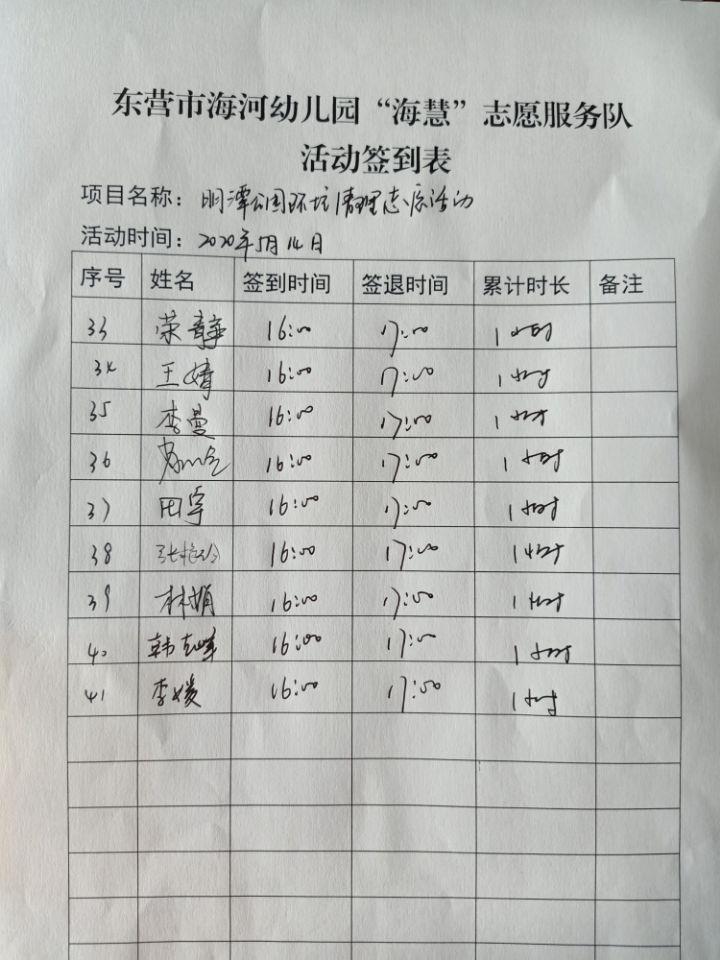 东营市海河幼儿园“海慧”志愿服务队
活动签到表
项目名称：明潭公园环境清理志愿活动
活动时间：2020年5月14日
序号 姓名 签到时间 签退时间 累计时长 备注
33 荣 16:00 17:00 1小时
34 王婧 16:00 17:00 1小时
35 李曼 16:00 17:00 1小时
36 16:00 17:00 1小时
37 田宇 16:00 17:00 1小时
38 张 16:00 17:00 1小时
39 林娟 16:00 17:00 1小时
40 韩 16:00 17:00 1小时
41 李媛 16:00 17:00 1小时